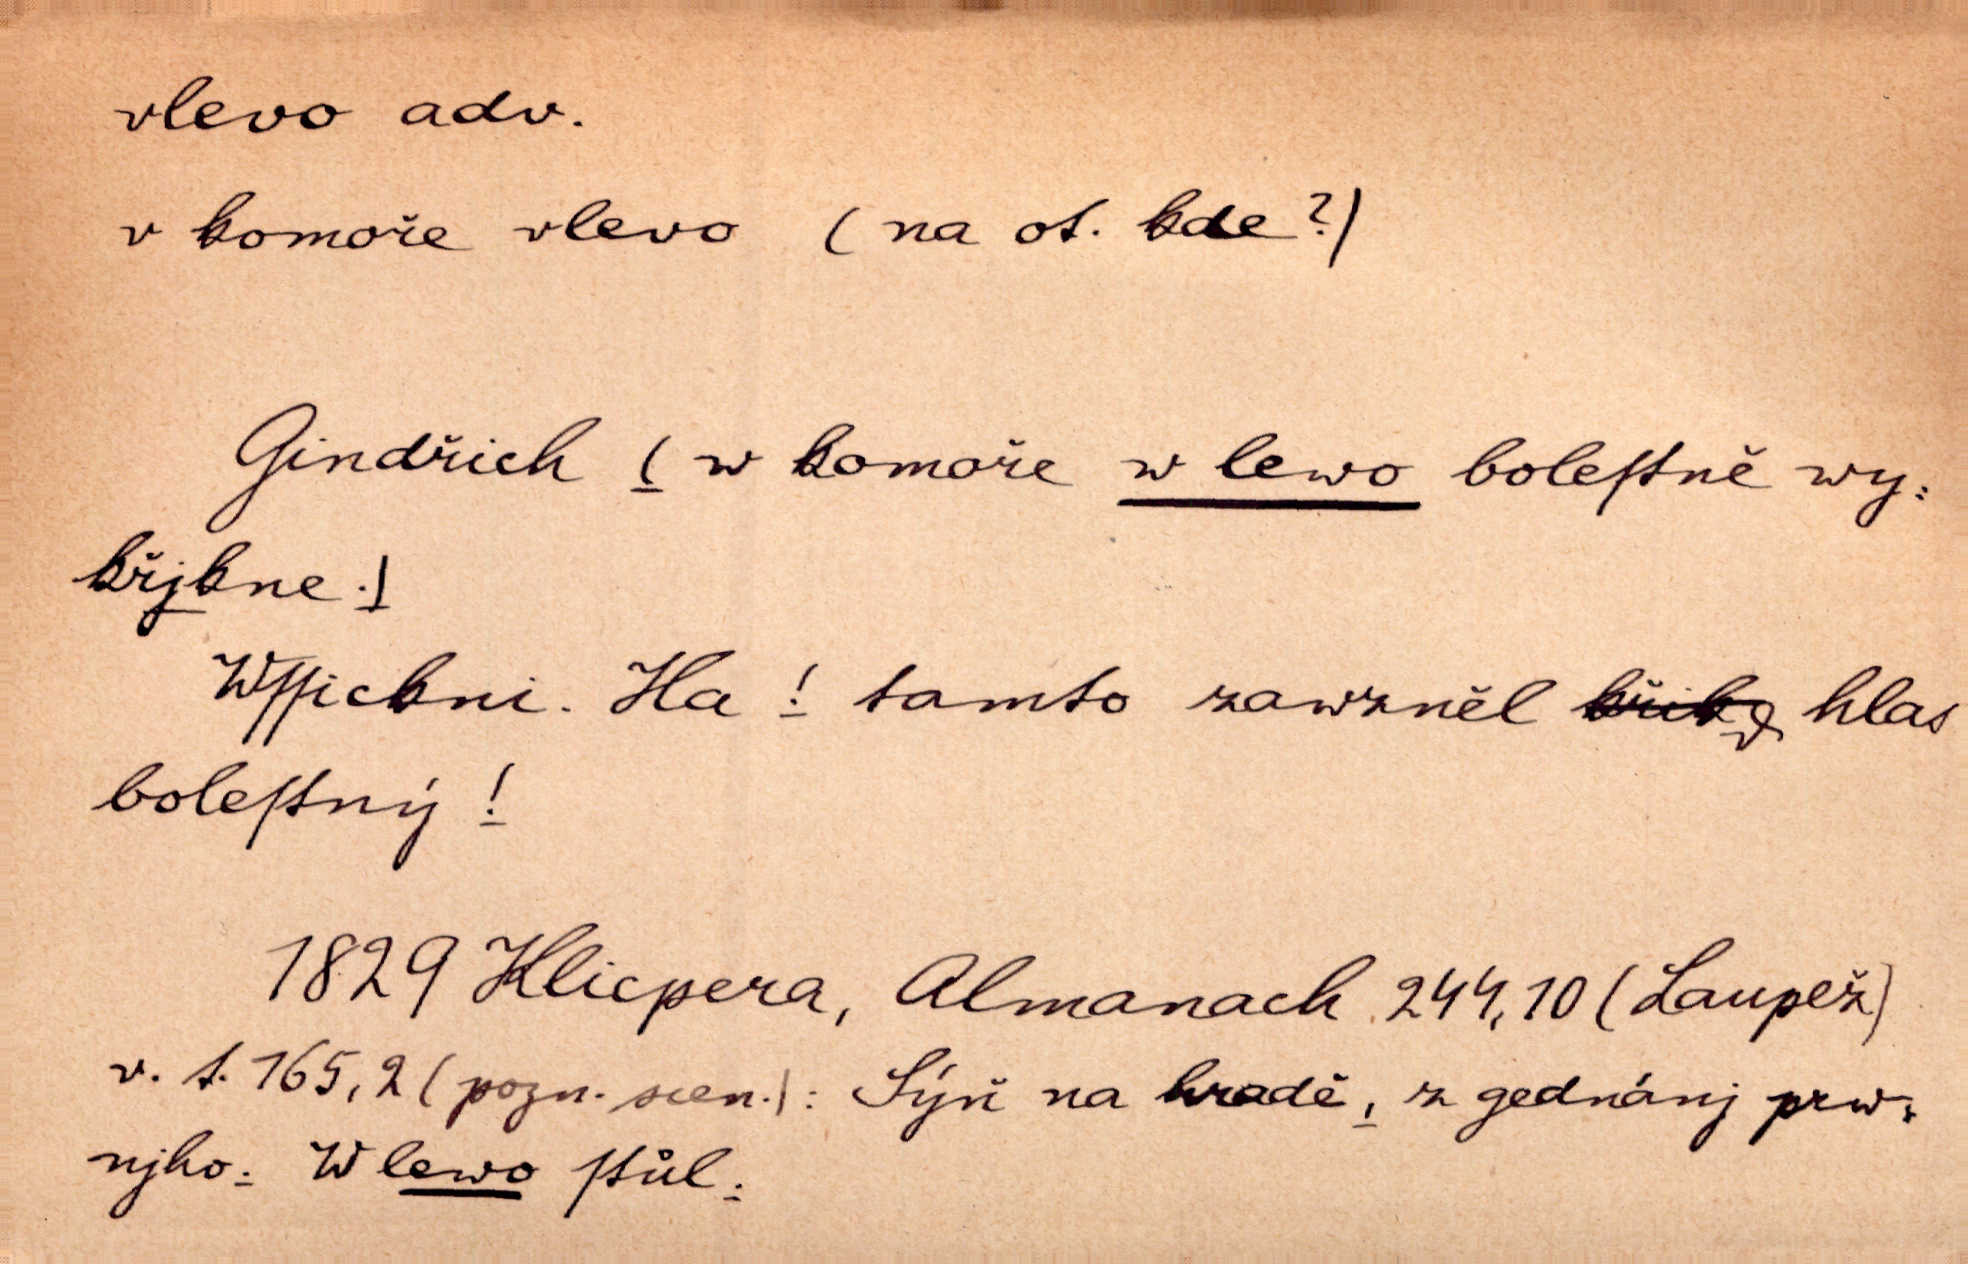 vlevo adv.
v komoře vlevo (na ot. kde?)
Gindřich (w komoře w lewo boleſtně wy:
křjkne.)
Wſſickni. Ha! tamto zawzněl křik hlas
boleſtný!
1829 Klicpera, Almanach 244,10 (Laupež)
v. t. 165,2 (pozn. scen.): Sýň na hradě, z gednánj prw:
njho. W lewo ſtůl.